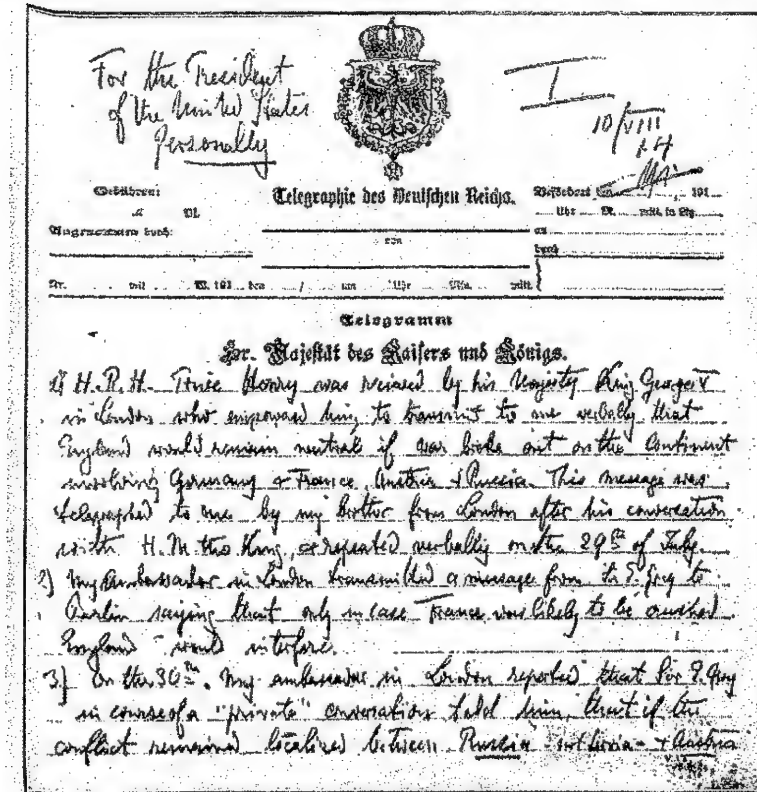 For the President
of the United States
Personally
I
10/VIII
14
Gebühren:
M.
Telegraphie des Deutschen Reichs.
Befördert den 191
Uhr M. mitt. in Ltg.
Angenommen durch:
von
an
durch
Nr. mit W. 191 den / um Uhr Min. mitt.
Telegramm
Sr. Majestät des Kaisers und Königs.
1) H.R.H. Prince Henry was received by his Majesty King George V
in London who empowered him to transmit to me verbally that
England would remain neutral if war broke out on the Continent
involving Germany & France, Austria & Russia. This message was
telegraphed to me by my brother from London after his conversation
with H.M. the King, & repeated verbally on the 29th of July.
2) My Ambassador in London transmitted a message from Sir E. Grey to
Berlin saying that only in case France was likely to be crushed
England would interfere.
3) On the 30th. my ambassador in London reported that Sir E. Grey
in course of a "private" conversation told him, that if the
conflict remained localized between Russia - Serbia - & Austria